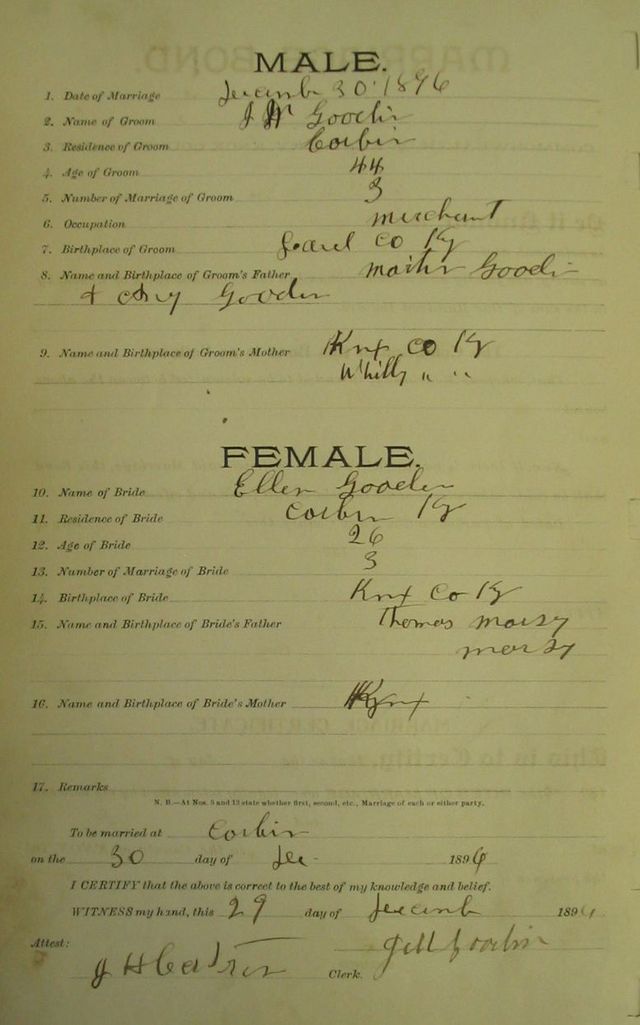 MALE.
1. Date of Marriage December 30 1896
2. Name of Groom J W Goodin
3. Residence of Groom Corbin
4. Age of Groom 44
5. Number of Marriage of Groom 3
6. Occupation merchant
7. Birthplace of Groom Co Ky
8. Name and Birthplace of Groom's Father Goodin
+ Gooden
9. Name and Birthplace of Groom's Mother Knx Co Ky
Whitly " "
FEMALE.
10. Name of Bride Ellen Gooden
11. Residence of Bride Corbin Ky
12. Age of Bride 26
13. Number of Marriage of Bride 3
14. Birthplace of Bride Knx Co Ky
15. Name and Birthplace of Bride's Father Thomas
16. Name and Birthplace of Bride's Mother
17. Remarks
N. B.—At Nos. 5 and 13 state whether first, second, etc., Marriage of each or either party.
To be married at Corbin
on the 30 day of Dec 1896
I CERTIFY that the above is correct to the best of my knowledge and belief.
WITNESS my hand, this 29 day of Decemb 1896
Attest:
Clerk.